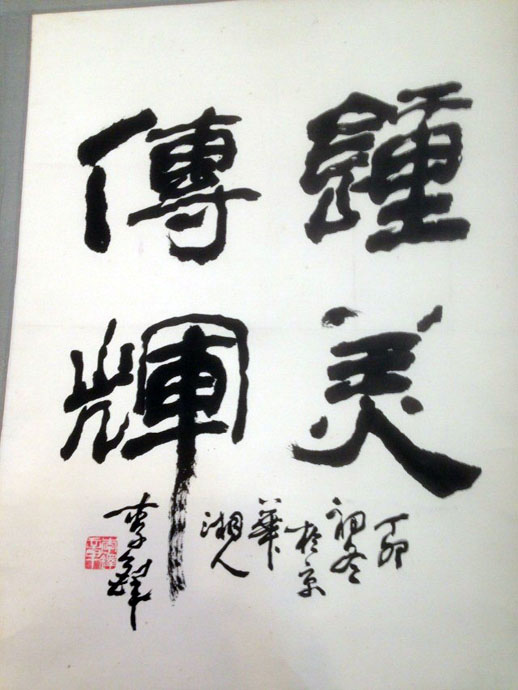 鍾美
傳輝
丁卯
初冬
於京
華
湘人
李鐸